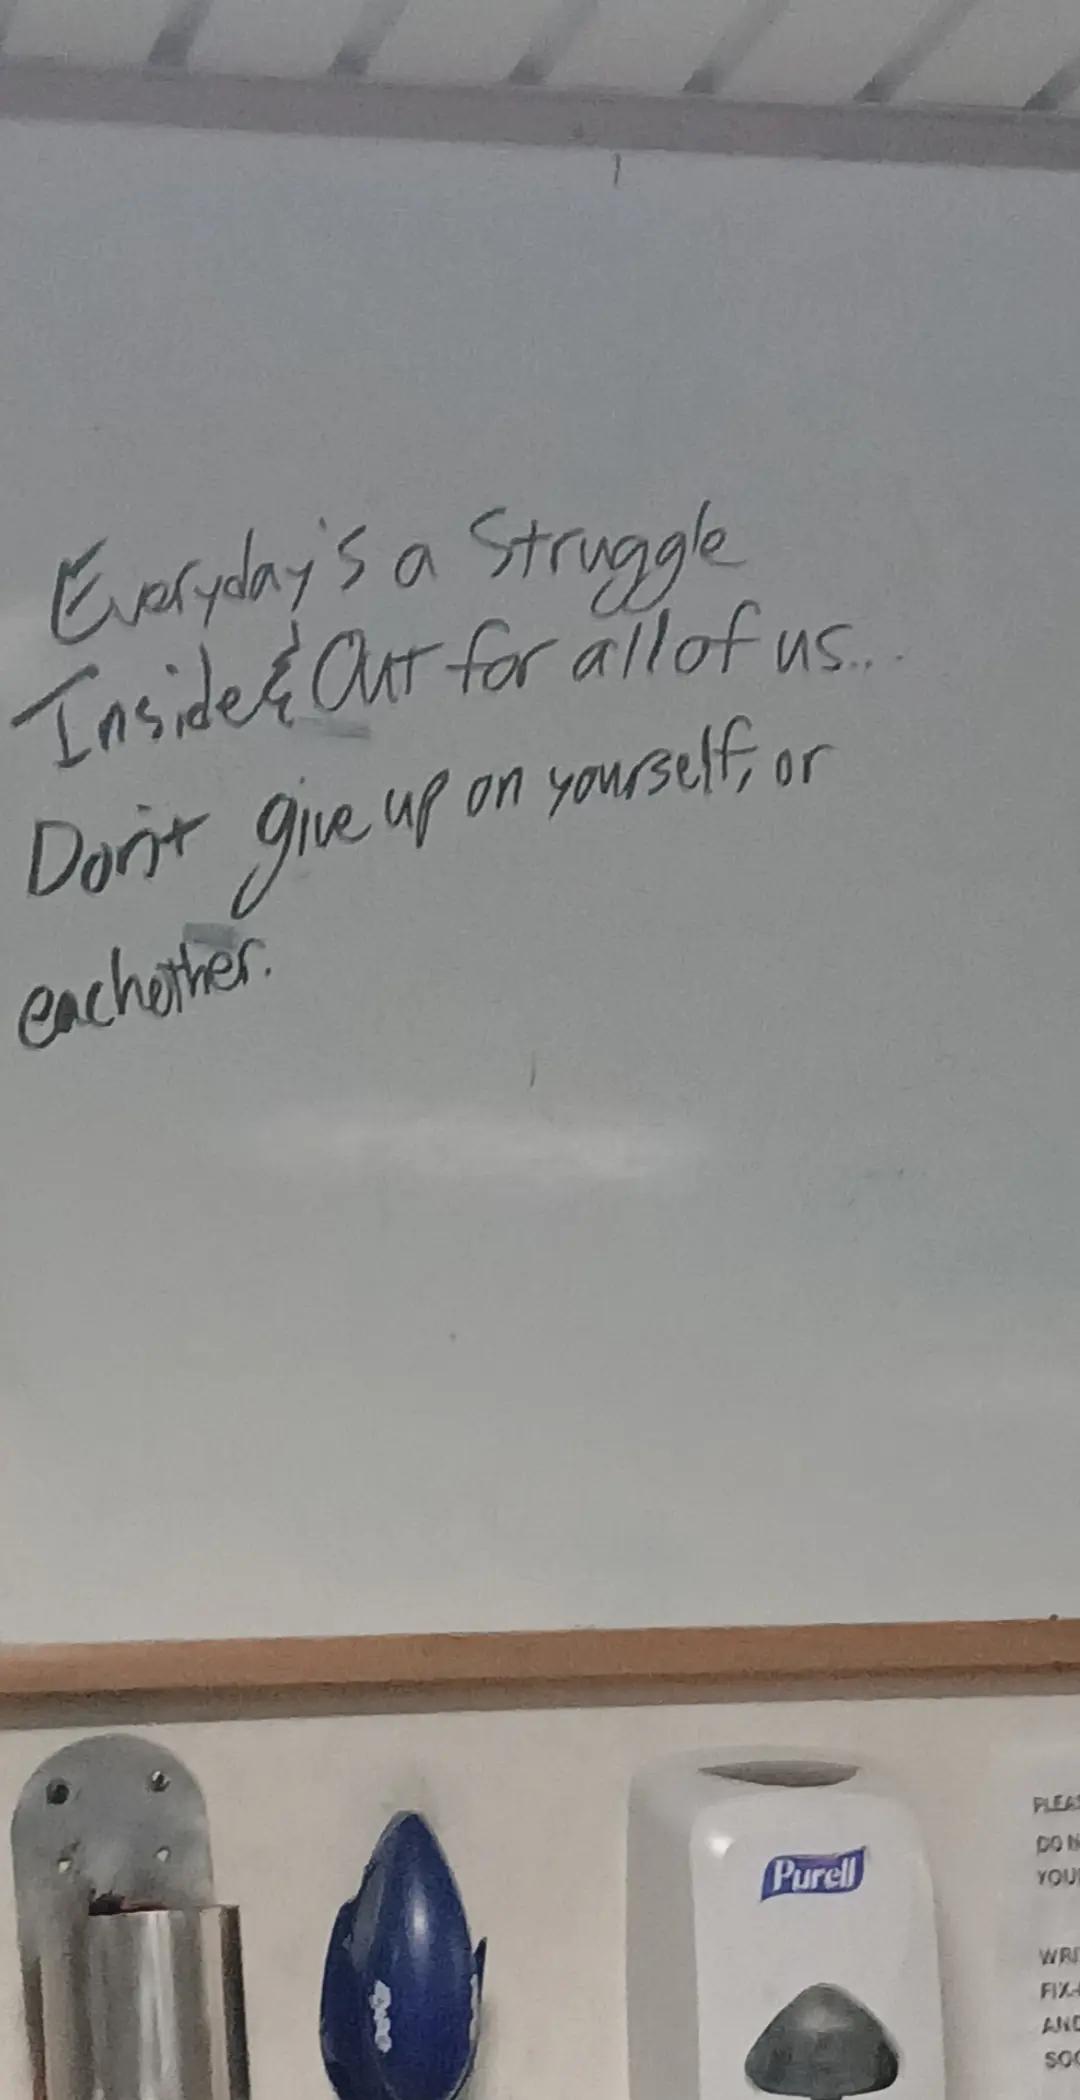 Everyday's a Struggle
Inside & Out for all of us...
Don't give up on yourself, or
eachother.
Purell
DO N
AND